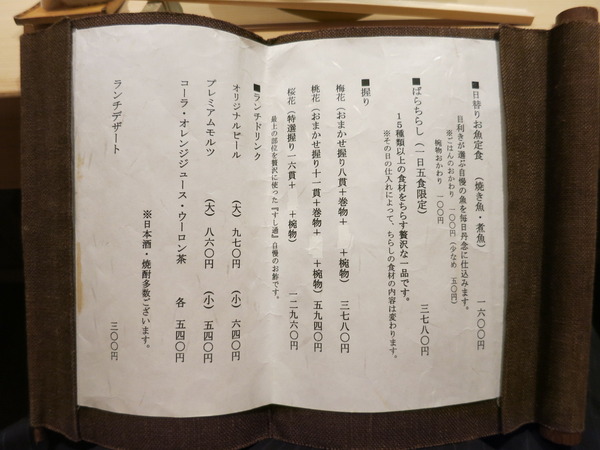 ■日替りお魚定食 （焼き魚・煮魚） 一六〇〇円
目利きが選ぶ自慢の魚を毎日丹念に仕込みます。
※ごはんのおかわり 一〇〇円（少なめ 五〇円）
椀物おかわり 一〇〇円
■ばらちらし（一日五食限定） 三七八〇円
15種類以上の食材をちらす贅沢な一品です。
※その日の仕入れによって、ちらしの食材の内容は変わります。
■握り
梅花（おまかせ握り八貫＋巻物＋ ＋椀物） 三七八〇円
桃花（おまかせ握り十一貫＋巻物＋ ＋椀物）五九四〇円
桜花（特選握り一六貫＋ ＋椀物） 一二九六〇円
最上の部位を贅沢に使った『すし通』自慢のお鮓です。
■ランチドリンク
オリジナルビール （大）九七〇円 （小）六四〇円
プレミアムモルツ （大）八六〇円 （小）五四〇円
コーラ・オレンジジュース・ウーロン茶 各 五四〇円
※日本酒・焼酎多数ございます。
ランチデザート 三〇〇円